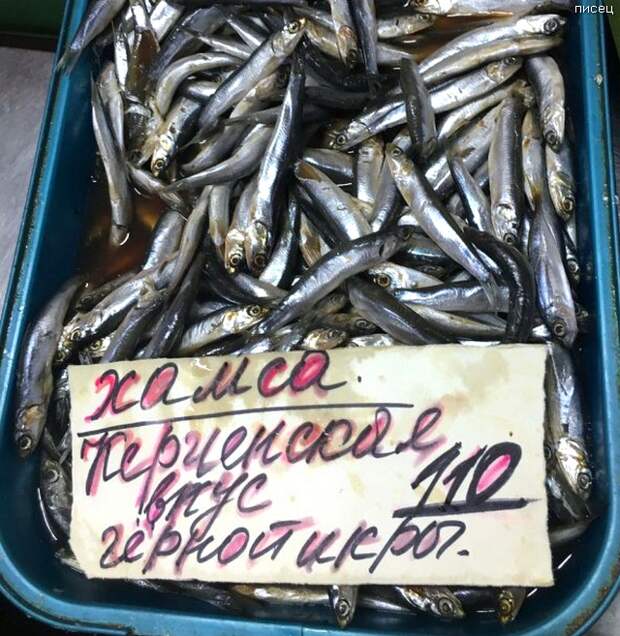 писец
хамса.
Керченская
110
вкус
чёрной икры.